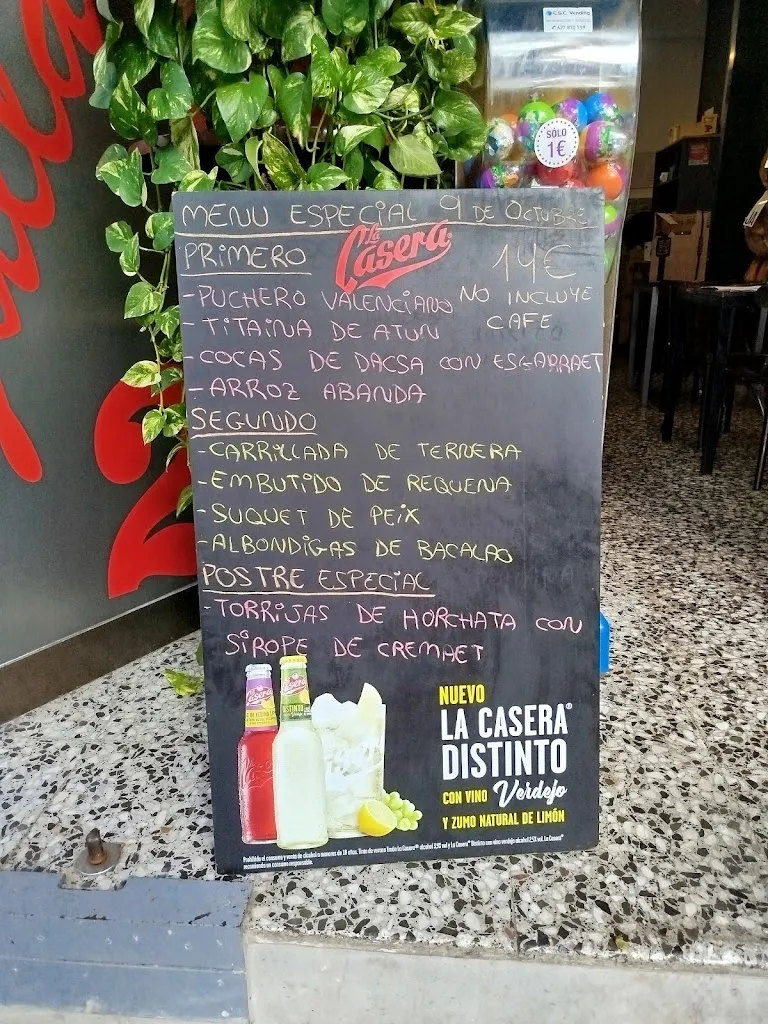 C.S.C. Vending
SÓLO
1€
MENU ESPECIAL 9 DE OCTUBRE
La Casera
PRIMERO
14€
-PUCHERO VALENCIANO
NO INCLUYE
CAFE
-TITAINA DE ATUN
-COCAS DE DACSA CON ESGARRAET
-ARROZ ABANDA
SEGUNDO
-CARRILLADA DE TERNERA
-EMBUTIDO DE REQUENA
-SUQUET DE PEIX
-ALBONDIGAS DE BACALAO
POSTRE ESPECIAL
-TORRIJAS DE HORCHATA CON
SIROPE DE CREMAET
NUEVO
LA CASERA®
DISTINTO
CON VINO Verdejo
Y ZUMO NATURAL DE LIMÓN
Casera
Casera
DISTINTO